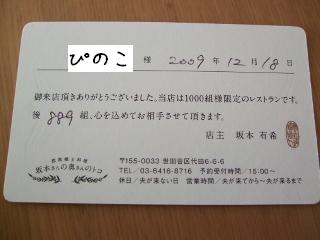 ぴのこ 様 2009年12月18日
御来店頂きありがとうございました。当店は1000組様限定のレストランです。
後 889 組、心を込めてお相手させて頂きます。
店主 坂本 有希
坂本さんの奥さんのトコ
〒155-0033 世田谷区代田6-6-6
TEL/03-6416-8716 予約受付時間/15:00〜
休日/夫が来ない日 営業時間/夫が来てから〜夫が来るまで